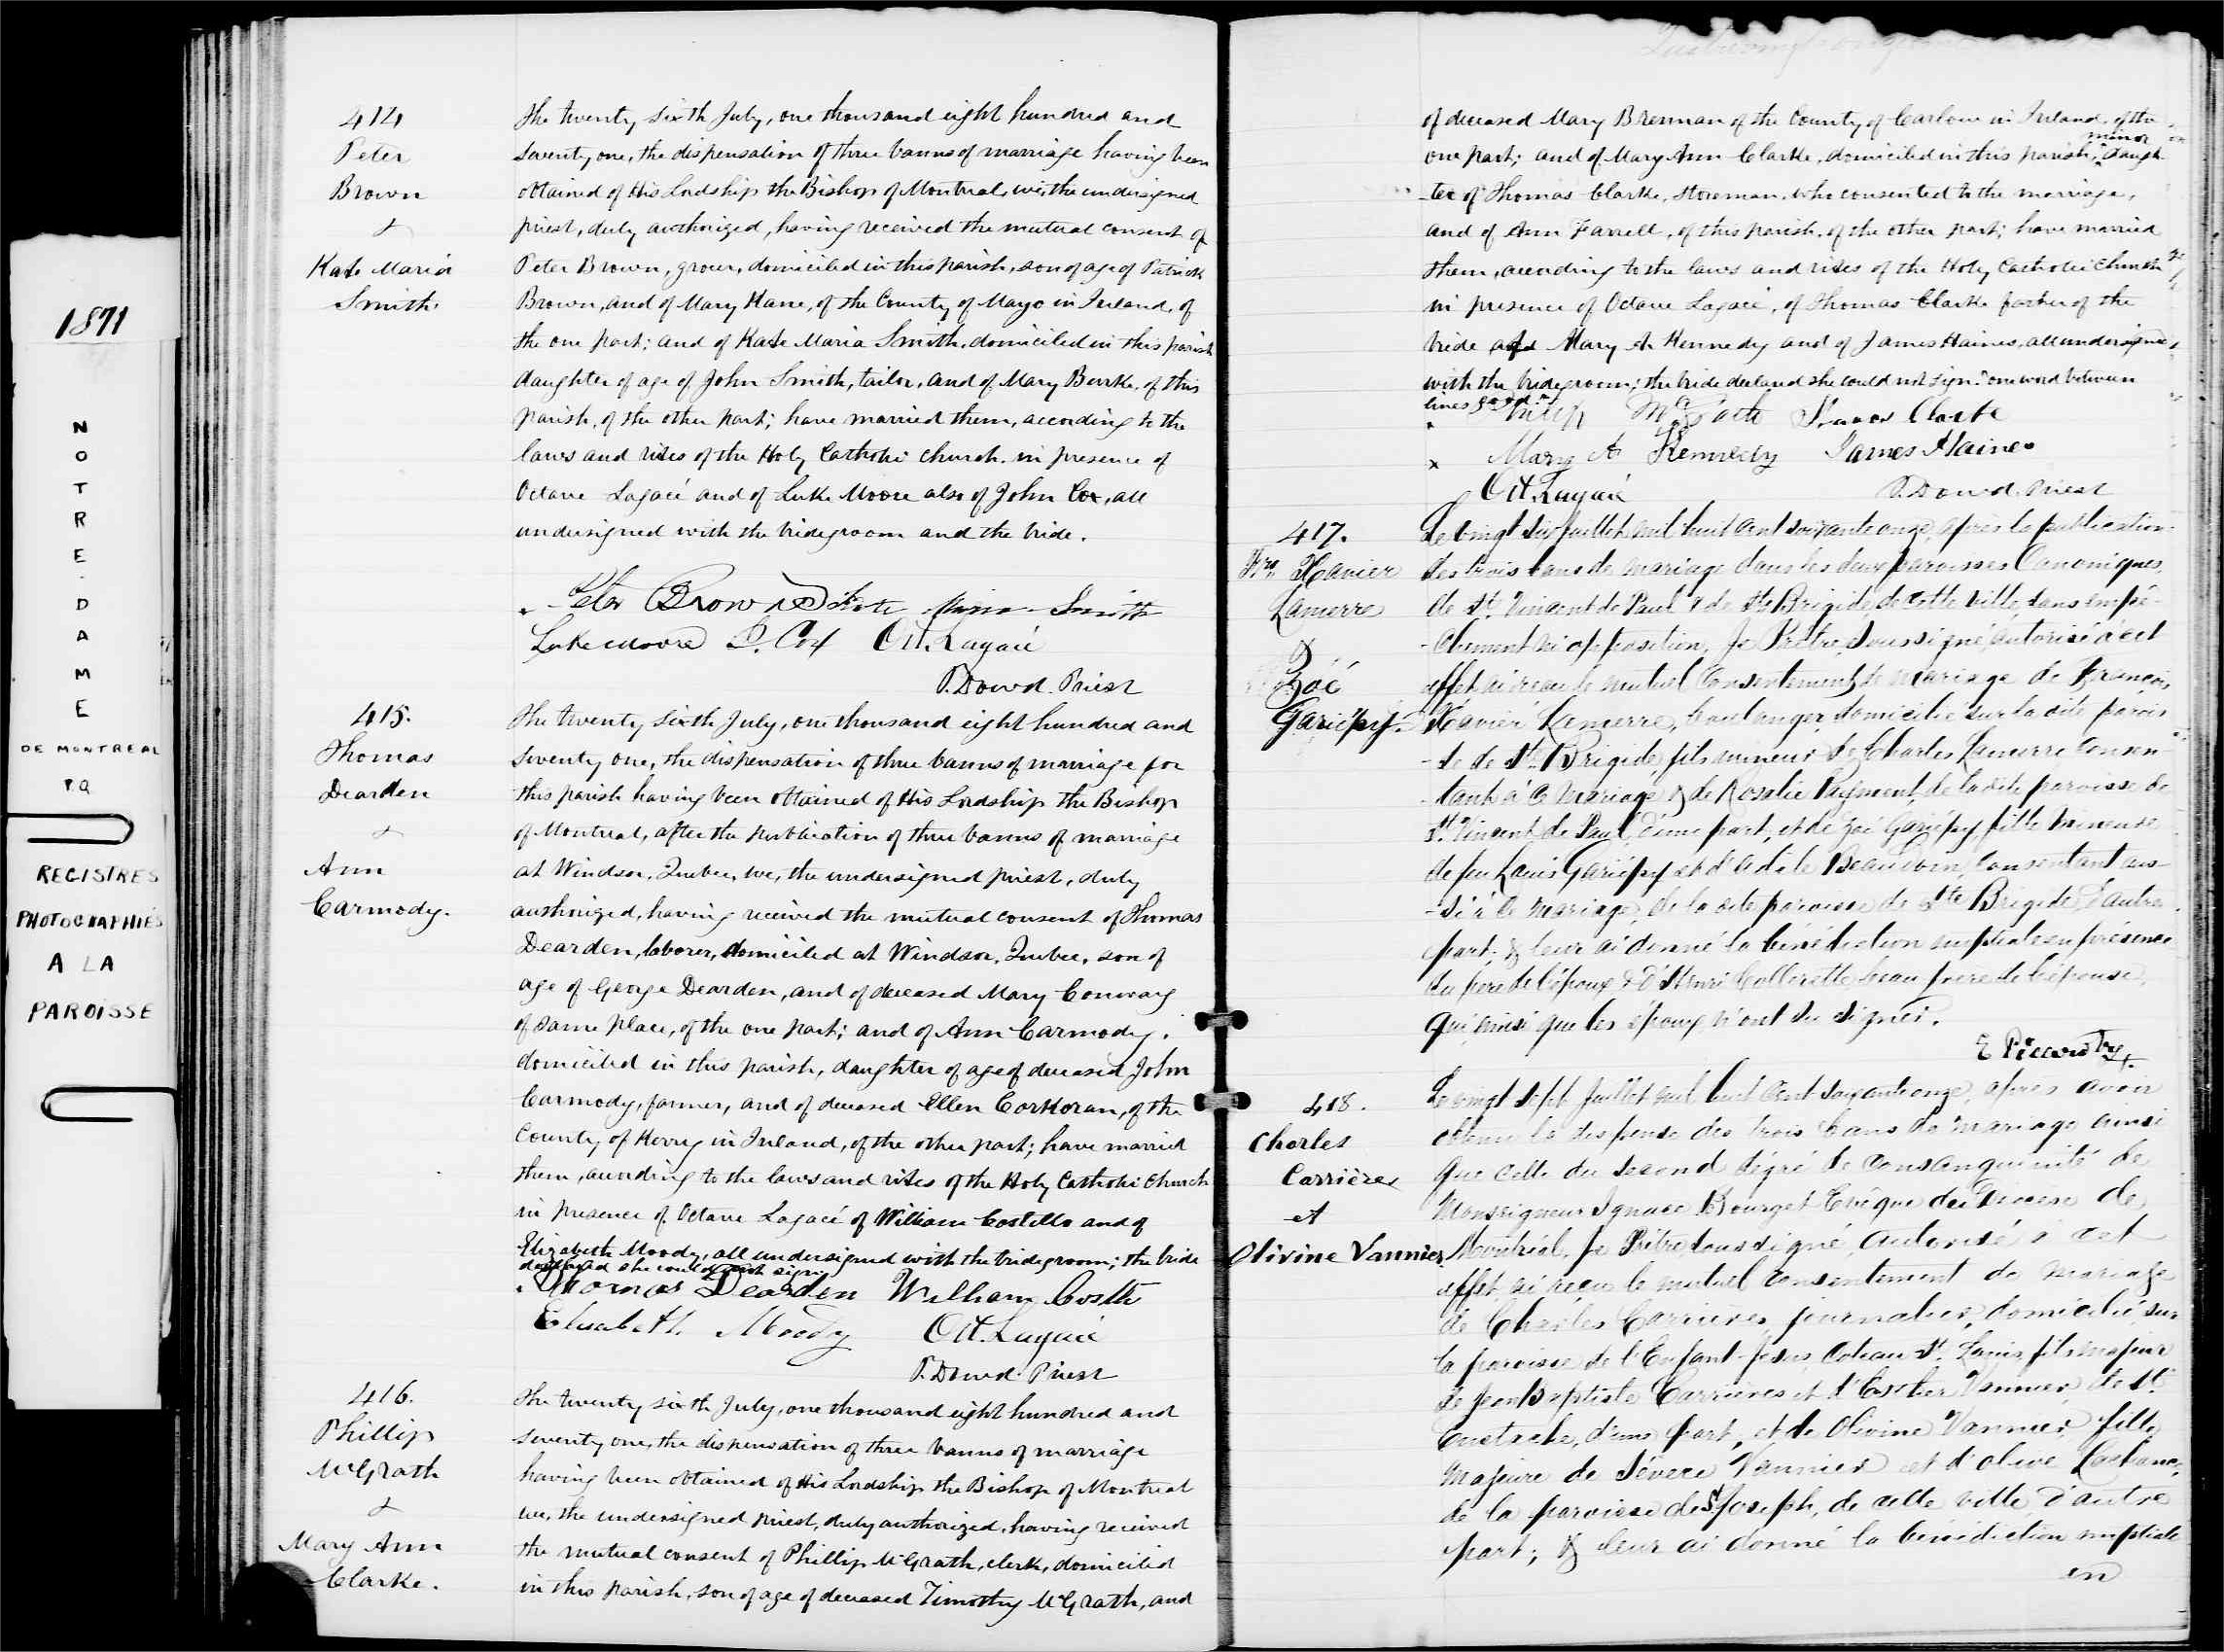 1871
NOTRE-DAME
DE MONTREAL
P.Q
REGISTRES
PHOTOGRAPHIÉS
A LA
PAROISSE
414
Peter
Brown
&
Kate Maria
Smith.
The twenty sixth July, one thousand eight hundred and
seventy one, the dispensation of three banns of marriage having been
obtained of His Lordship the Bishop of Montreal, we, the undersigned
priest, duly authorized, having received the mutual consent of
Peter Brown, grocer, domiciled in this parish, son of age of Patrick
Brown, and of Mary Kane, of the County of Mayo in Ireland, of
the one part; and of Kate Maria Smith, domiciled in this parish
daughter of age of John Smith, tailor, and of Mary Burke, of this
parish, of the other part; have married them, according to the
laws and rites of the Holy Catholic Church, in presence of
Octave Lagacé and of Luke Moore also of John Cox, all
undersigned with the bridegroom and the bride.
Peter Brown Kate Smith
Luke Moore J. Cox Oct. Lagacé
P. Dowd. Priest
415.
Thomas
Dearden
&
Ann
Carmody.
The twenty sixth July, one thousand eight hundred and
seventy one, the dispensation of three banns of marriage for
this parish having been obtained of His Lordship the Bishop
of Montreal, after the publication of three banns of marriage
at Windsor, Quebec, we, the undersigned priest, duly
authorized, having received the mutual consent of Thomas
Dearden, laborer, domiciled at Windsor, Quebec, son of
age of George Dearden, and of deceased Mary Conway
of same place, of the one part; and of Ann Carmody,
domiciled in this parish, daughter of age of deceased John
Carmody, farmer, and of deceased Ellen Corkoran, of the
County of Kerry in Ireland, of the other part; have married
them, according to the laws and rites of the Holy Catholic Church
in presence of Octave Lagacé of William Costello and of
Elizabeth Moody, all undersigned with the bridegroom; the bride
declared she could not sign.
Thomas Dearden William Costello
Elisabeth Moody Oct. Lagacé
P. Dowd. Priest
416.
Phillip
McGrath
&
Mary Ann
Clarke.
The twenty sixth July, one thousand eight hundred and
seventy one, the dispensation of three banns of marriage
having been obtained of His Lordship the Bishop of Montreal
we, the undersigned priest, duly authorized, having received
the mutual consent of Phillip McGrath, clerk, domiciled
in this parish, son of age of deceased Timothy McGrath, and
of deceased Mary Brennan of the County of Carlow in Ireland, of the
one part; and of Mary Ann Clarke, domiciled in this parish, minor daugh-
-ter of Thomas Clarke, storeman, who consented to the marriage,
and of Ann Farrell, of this parish, of the other part; have married
them, according to the laws and rites of the Holy Catholic Church
in presence of Octave Lagacé, of Thomas Clarke father of the
bride of Mary A. Kennedy and of James Haines, all undersigned
with the bridegroom; the bride declared she could not sign. "one word between
lines good."
McGrath Clarke
Mary A Kennedy James Haines
Oct. Lagacé P. Dowd. Priest
417.
Frs. Xavier
Lamerre
&
Zoé
Gariépy.
Le vingt six Juillet mil huit cent soixante onze, après la publication
des trois bans de mariage dans les deux paroisses Canoniques
de St. Vincent de Paul & de Ste Brigide de cette ville, sans empê-
-chement ni opposition, Je Prêtre Soussigné autorisé à cet
effet ai reçu le mutuel Consentement de mariage de François
Xavier Lamerre, boulanger, domicilié sur la dite parois-
-se de Ste Brigide, fils mineur de Charles Lamerre Consen-
-tant à ce mariage & de Rosalie Payment, de la dite paroisse de
St. Vincent de Paul, d'une part, et de Zoé Gariépy fille mineure
de feu Louis Gariépy et d'Odile Beaudoin, Consentant aus-
-si à ce mariage, de la dite paroisse de Ste Brigide, d'autre
part; & leur ai donné la bénédiction nuptiale en présence
du père de l'époux & d'Henri Collerette beau frère de l'épouse,
qui ainsi que les époux n'ont su signer.
E Picard Ptre.
418.
Charles
Carrières
et
Olivine Vannier
Le vingt sept Juillet mil huit cent soixante onze, après avoir
obtenu la dispense des trois bans de mariage ainsi
que celle du second dégré de consanguinité de
Monseigneur Ignace Bourget Evêque du Diocèse de
Montréal, Je Prêtre soussigné autorisé à cet
effet ai reçu le mutuel consentement de mariage
de Charles Carrières, journalier, domicilié sur
la paroisse de l'Enfant-Jésus, Coteau St. Louis, fils majeur
de Jean Baptiste Carrières et d'Esther Vannier, de St.
Eustache, d'une part, et de Olivine Vannier fille
majeure de Sévère Vannier et d'Olive
de la paroisse de St Joseph, de cette ville, d'autre
part; & leur ai donné la bénédiction nuptiale
en